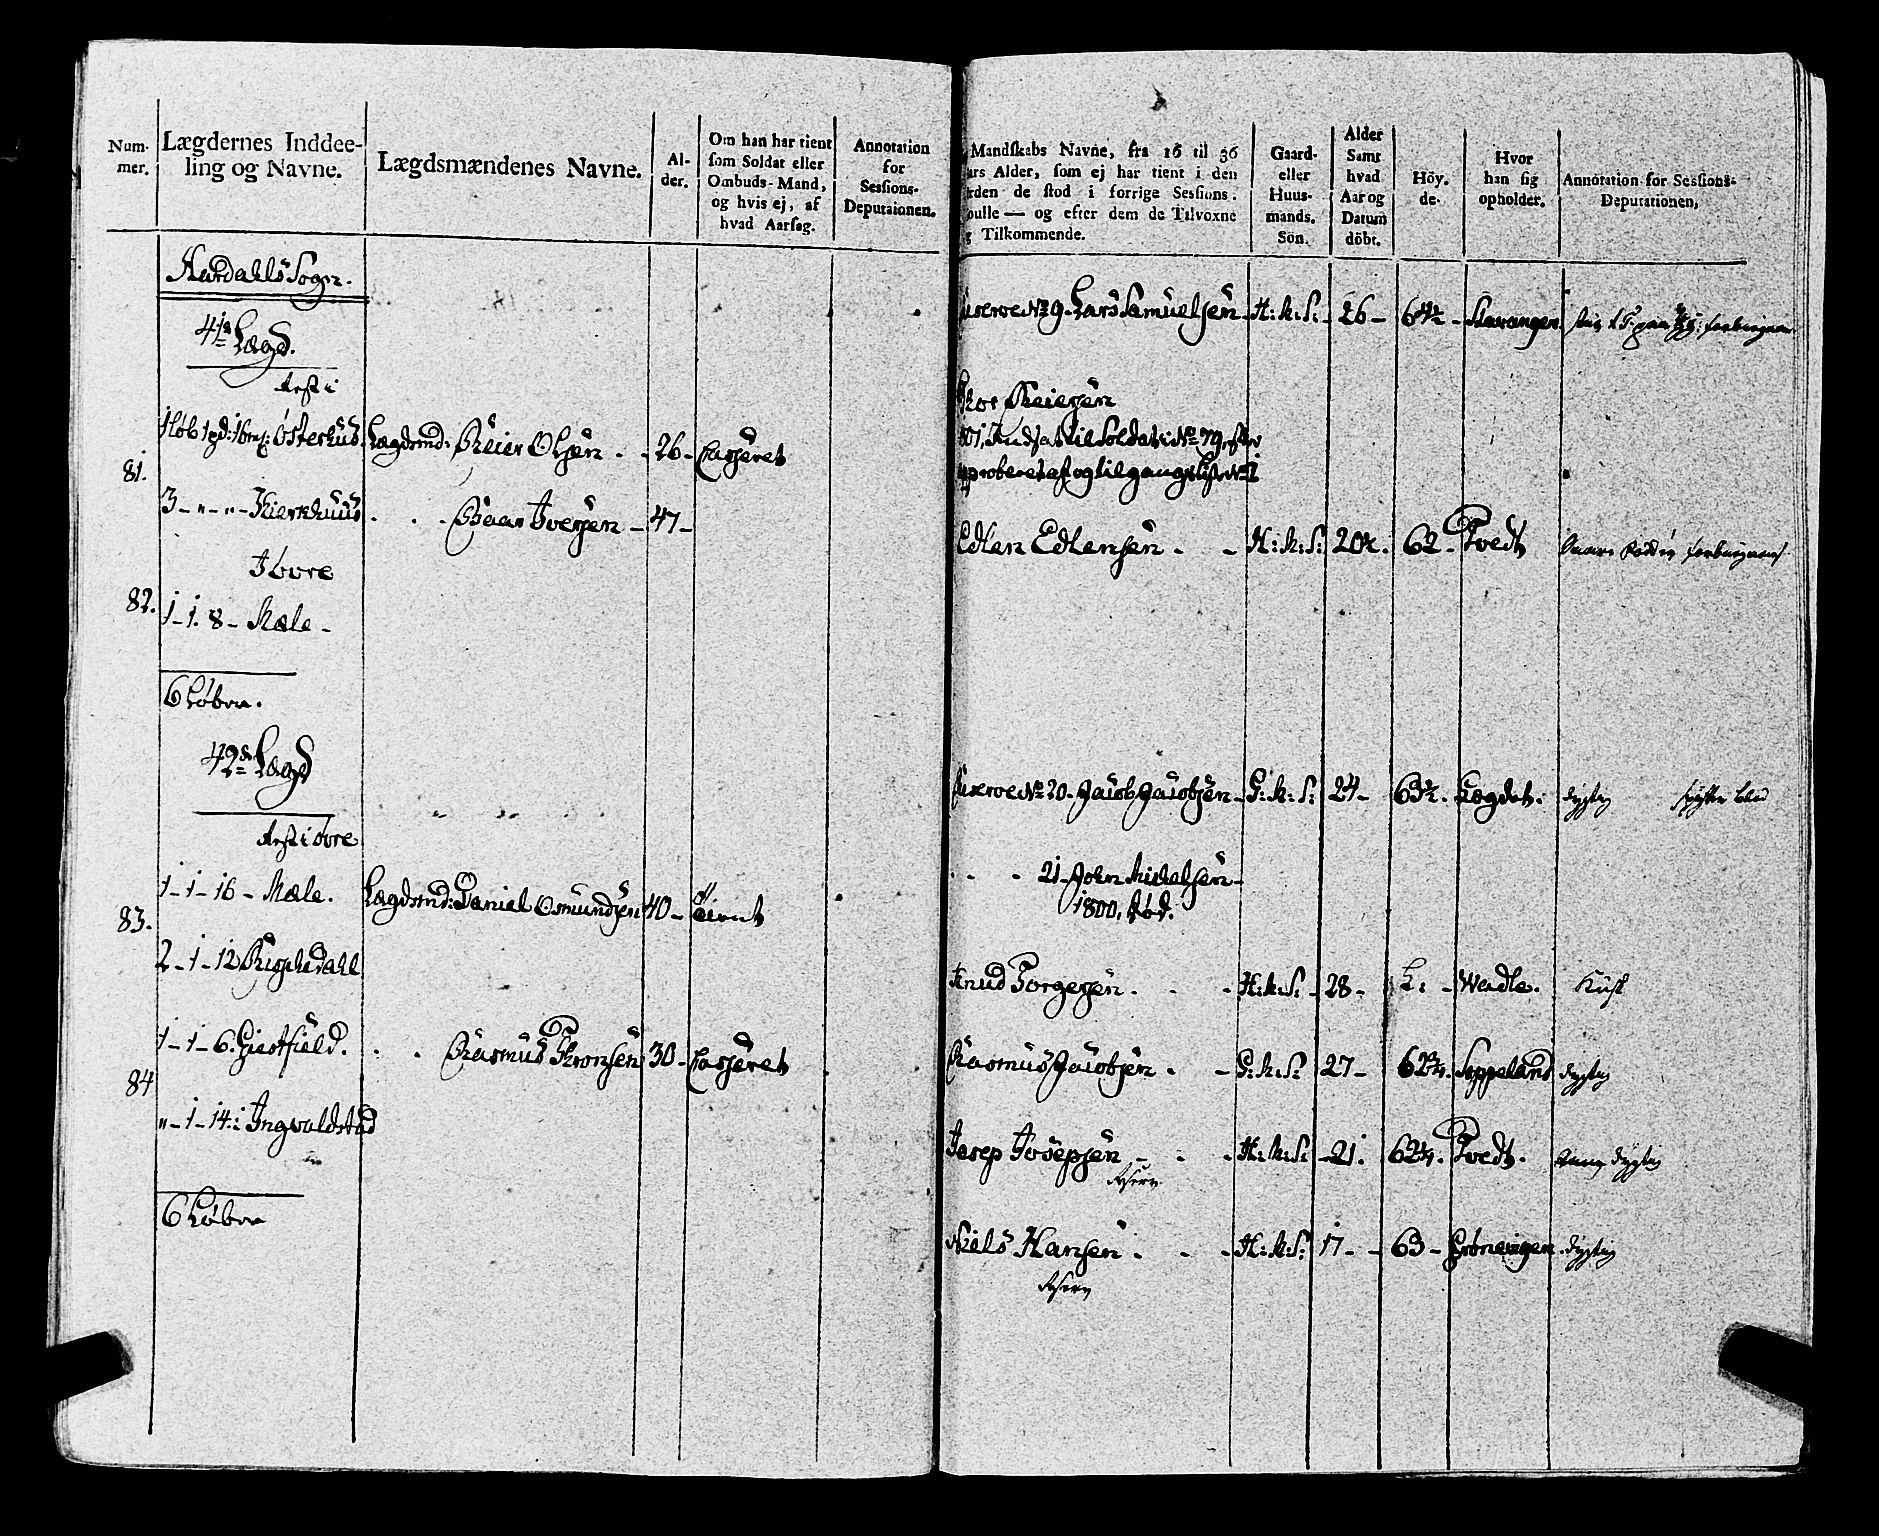 Num-
mer.
Lægdernes Inddee-
ling og Navne.
Lægdsmændenes Navne.
Al-
der.
Om han har tient
som Soldat eller
Ombuds-Mand,
og hvis ej, af
hvad Aarsag.
Annotation
for
Sessions-
Deputaionen.
Aardahls Sogn.
41de Lægd.
Rest i
Østerhus. Lægdsmd: Reier Olsen . - 26 - Casseret
81.
3 - " - " - Kierkhuus . . . Baar Iversen - 47 -
Ibore
82. 1 - 1. 8 - Mæle -
6 Løber.
42de Lægd
Rest i øvre
83. 1 - 1 - 16 - Mæle. Lægdsmd: Daniel Osmundsen 40 - tient
2 - 1 - 12 Riskedahl
84 1 - 1 - 6. Giestfield. . . Rasmus Thronsen 30 - Casseret
" - 1 - 14. Ingvaldstad
6 Løber
Mandskabs Navne, fra 16 til 36
ars Alder, som ej har tient i den
rden de stod i forrige Sessions.
oulle — og efter dem de Tilvoxne
g Tilkommende.
Gaard-
eller
Huus-
mands.
Sön.
Alder
Samt
hvad
Aar og
Datum
döbt.
Höy-
de.
Hvor
han sig
opholder.
Annotation for Sessions-
Deputationen,
Reserve No 9. Lars Samuelsen - H: M: S: - 26 - 64½ - Stavanger.
Thor Reiersen
Indsat til Soldat i No 79
approberet af og tilgangs Liste No 1
Edlen Edlensen . - H: M: S: 20½. 62 - Tvedt
Reserve No 20. Jacob Jacobsen - G: M: S: 24 - 63½. Lægdet. dygtig
. . - 21 - John Michelsen -
1800, død.
Knud Torgersen . - - H: M: S: - 28 - L: - Wadle.
Rasmus Jacobsen . - G: M: S: 27 - 62¾. Soppeland dygtig
Josep Josepsen - - - H: M: S: - 21. 62¼. Tvedt. dygtig
Reserv
Niels Hansen . - - H: M: S: 17 - - 63 - Grönevigen. dygtig
Reserv